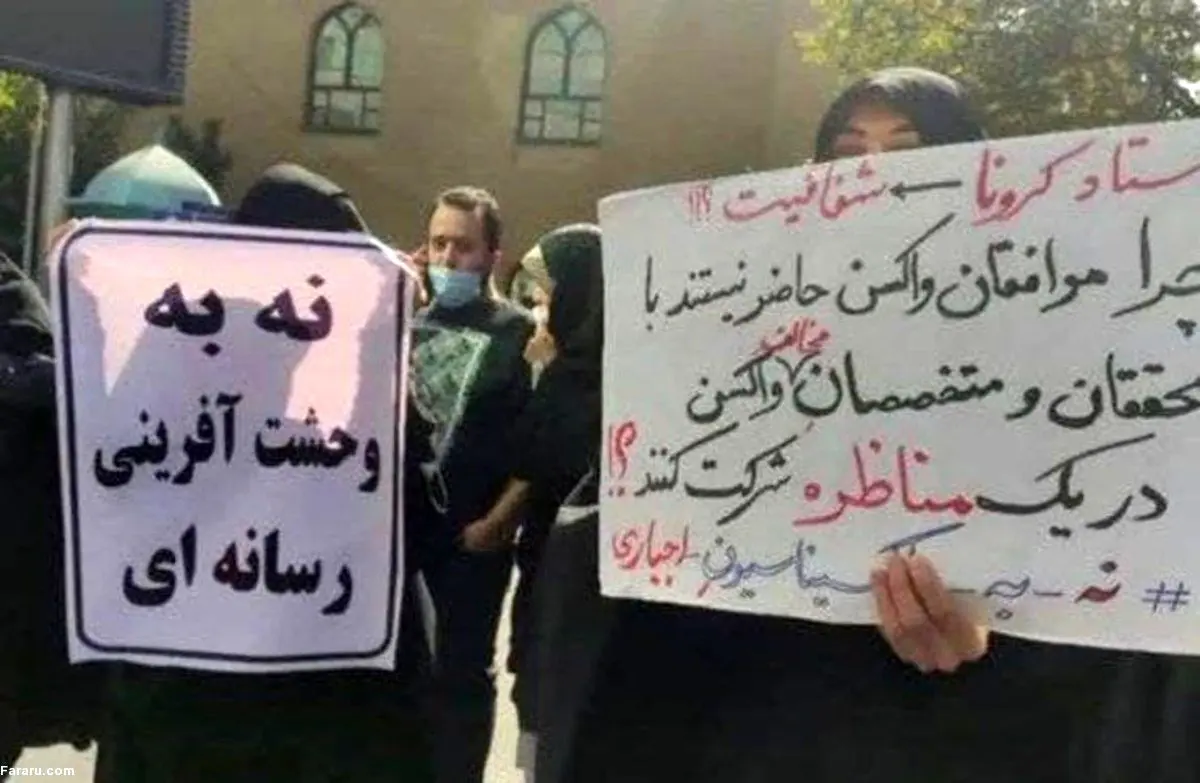 نه به
وحشت آفرینی
رسانه ای
ستاد کرونا ← شفافیت ؟!!
چرا موافقان واکسن حاضر نیستند با
محققان و متخصصان مخالف واکسن
در یک مناظره شرکت کنند؟!
# نه - به - واکسیناسیون - اجباری
Fararu.com